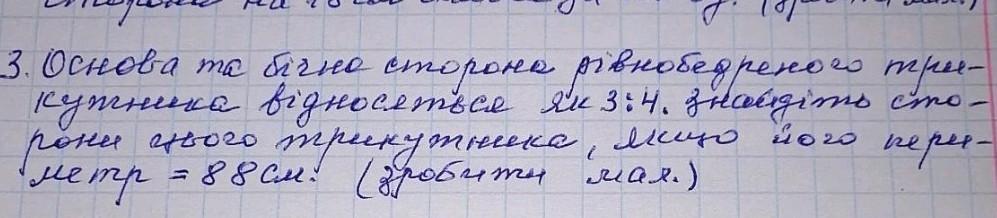 3. Основа та бічна сторона рівнобедреного три-
кутника відносяться як 3:4. Знайдіть сто-
рони цього трикутника, якщо його пери-
метр = 88 см. (зробити мал.)